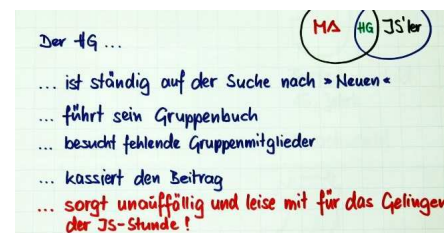 MA HG JS'ler
Der HG ...
... ist ständig auf der Suche nach »Neuen«
... führt sein Gruppenbuch
... besucht fehlende Gruppenmitglieder
... kassiert den Beitrag
... sorgt unauffällig und leise mit für das Gelingen
der JS-Stunde!